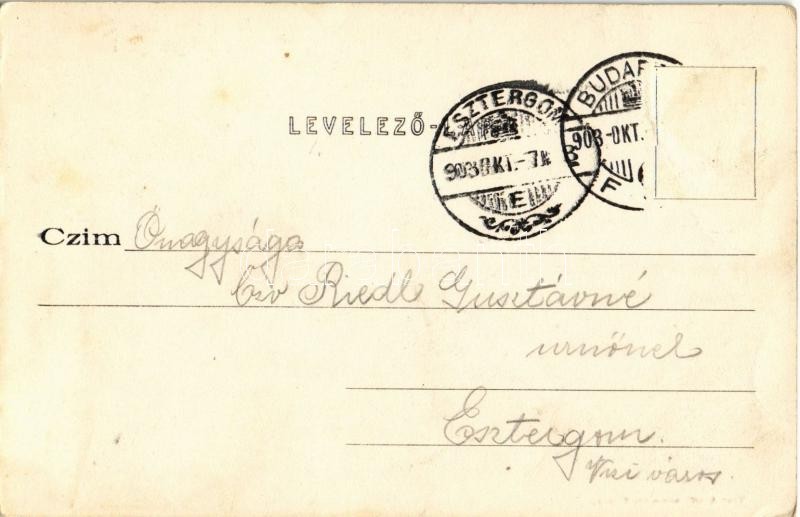 LEVELEZŐ-
ESZTERGOM
903 OKT.-7
E
BUDAP
903 OKT.
F
Czim Őnagysága
Özv Riedl Gusztávné
urnőnek
Esztergom.
Vizi város.